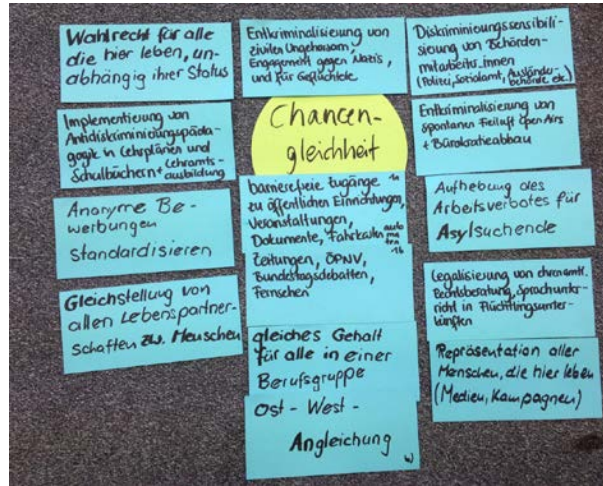 Wahlrecht für alle
die hier leben, un-
abhängig ihrer Status
Implementierung von
Antidiskriminierungspäda-
gogik in Lehrplänen und
Schulbüchern + Lehramts-
ausbildung
Anonyme Be-
werbungen
Standardisieren
Gleichstellung von
allen Lebenspartner-
schaften zw. Menschen
Entkriminalisierung von
zivilen Ungehorsam,
Engagement gegen Nazis,
und für Geflüchtete
Chancen-
gleichheit
barrierefreie Zugänge
zu öffentlichen Einrichtungen,
Veranstaltungen,
Dokumente, Fahrkarten
Zeitungen, ÖPNV,
Bundestagsdebatten,
Fernsehen
gleiches Gehalt
für alle in einer
Berufsgruppe
Ost - West -
Angleichung
Diskriminierungssensibili-
sierung von Behörden-
mitarbeiter_innen
(Polizei, Sozialamt, Ausländer-
behörde etc.)
Entkriminalisierung von
spontanen Freiluft Open Airs
+ Bürokratieabbau
Aufhebung des
Arbeitsverbotes für
Asylsuchende
Legalisierung von ehrenamtl.
Rechtsberatung, Sprachunter-
richt in Flüchtlingsunter-
künften
Repräsentation aller
Menschen, die hier leben
(Medien, Kampagnen)